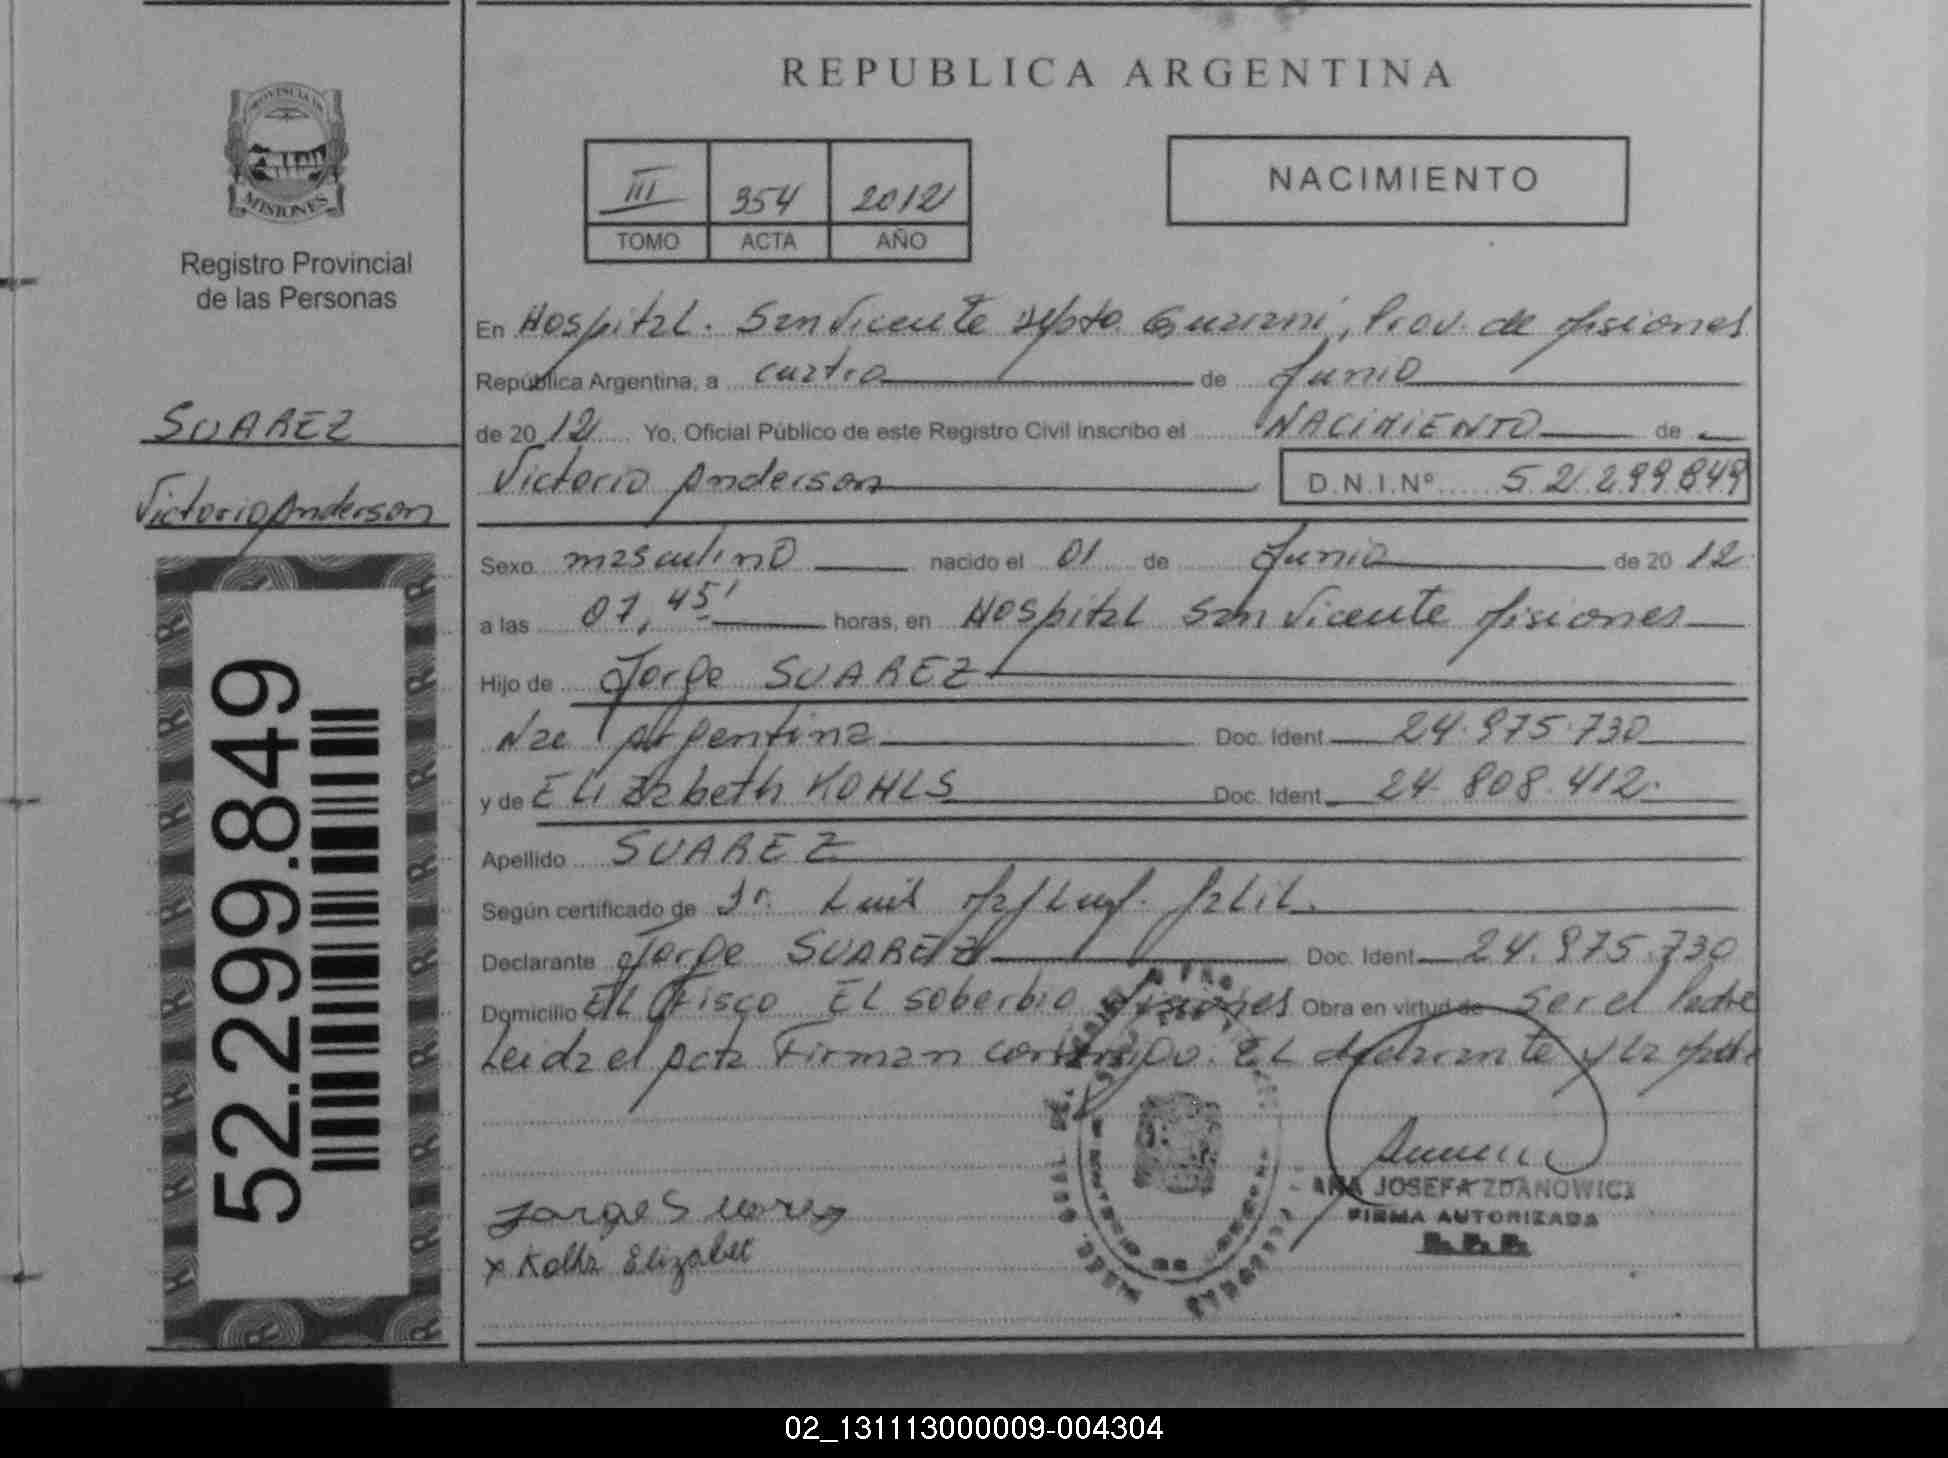 PROVINCIA DE
MISIONES
Registro Provincial
de las Personas
SUAREZ
Victorio Anderson
52.299.849
REPUBLICA ARGENTINA
III 354 2012
TOMO ACTA AÑO
NACIMIENTO
En Hospital. San Vicente Dpto. Guarani, Prov. de Misiones
República Argentina, a cuatro de Junio
de 2012 Yo, Oficial Público de este Registro Civil inscribo el NACIMIENTO de
Victorio Anderson D.N.I.Nº 52.299.849
Sexo masculino nacido el 01 de Junio de 2012
a las 07,45' horas, en Hospital San Vicente Misiones
Hijo de Jorge SUAREZ
Nac Argentina Doc. Ident 24.975.730
y de Elizabeth KOHLS Doc. Ident 24.808.412.
Apellido SUAREZ
Según certificado de Dr. Luis
Declarante Jorge SUAREZ Doc. Ident 24.975.730
Domicilio El Fisco El Soberbio Misiones Obra en virtud de ser el Padre
Leida el Acta Firman conmigo. El declarante y la Madre
Jorge Suarez
x Kolhz Elizabet
ANA JOSEFA ZDANOWICZ
FIRMA AUTORIZADA
R.P.P.
02_131113000009-004304